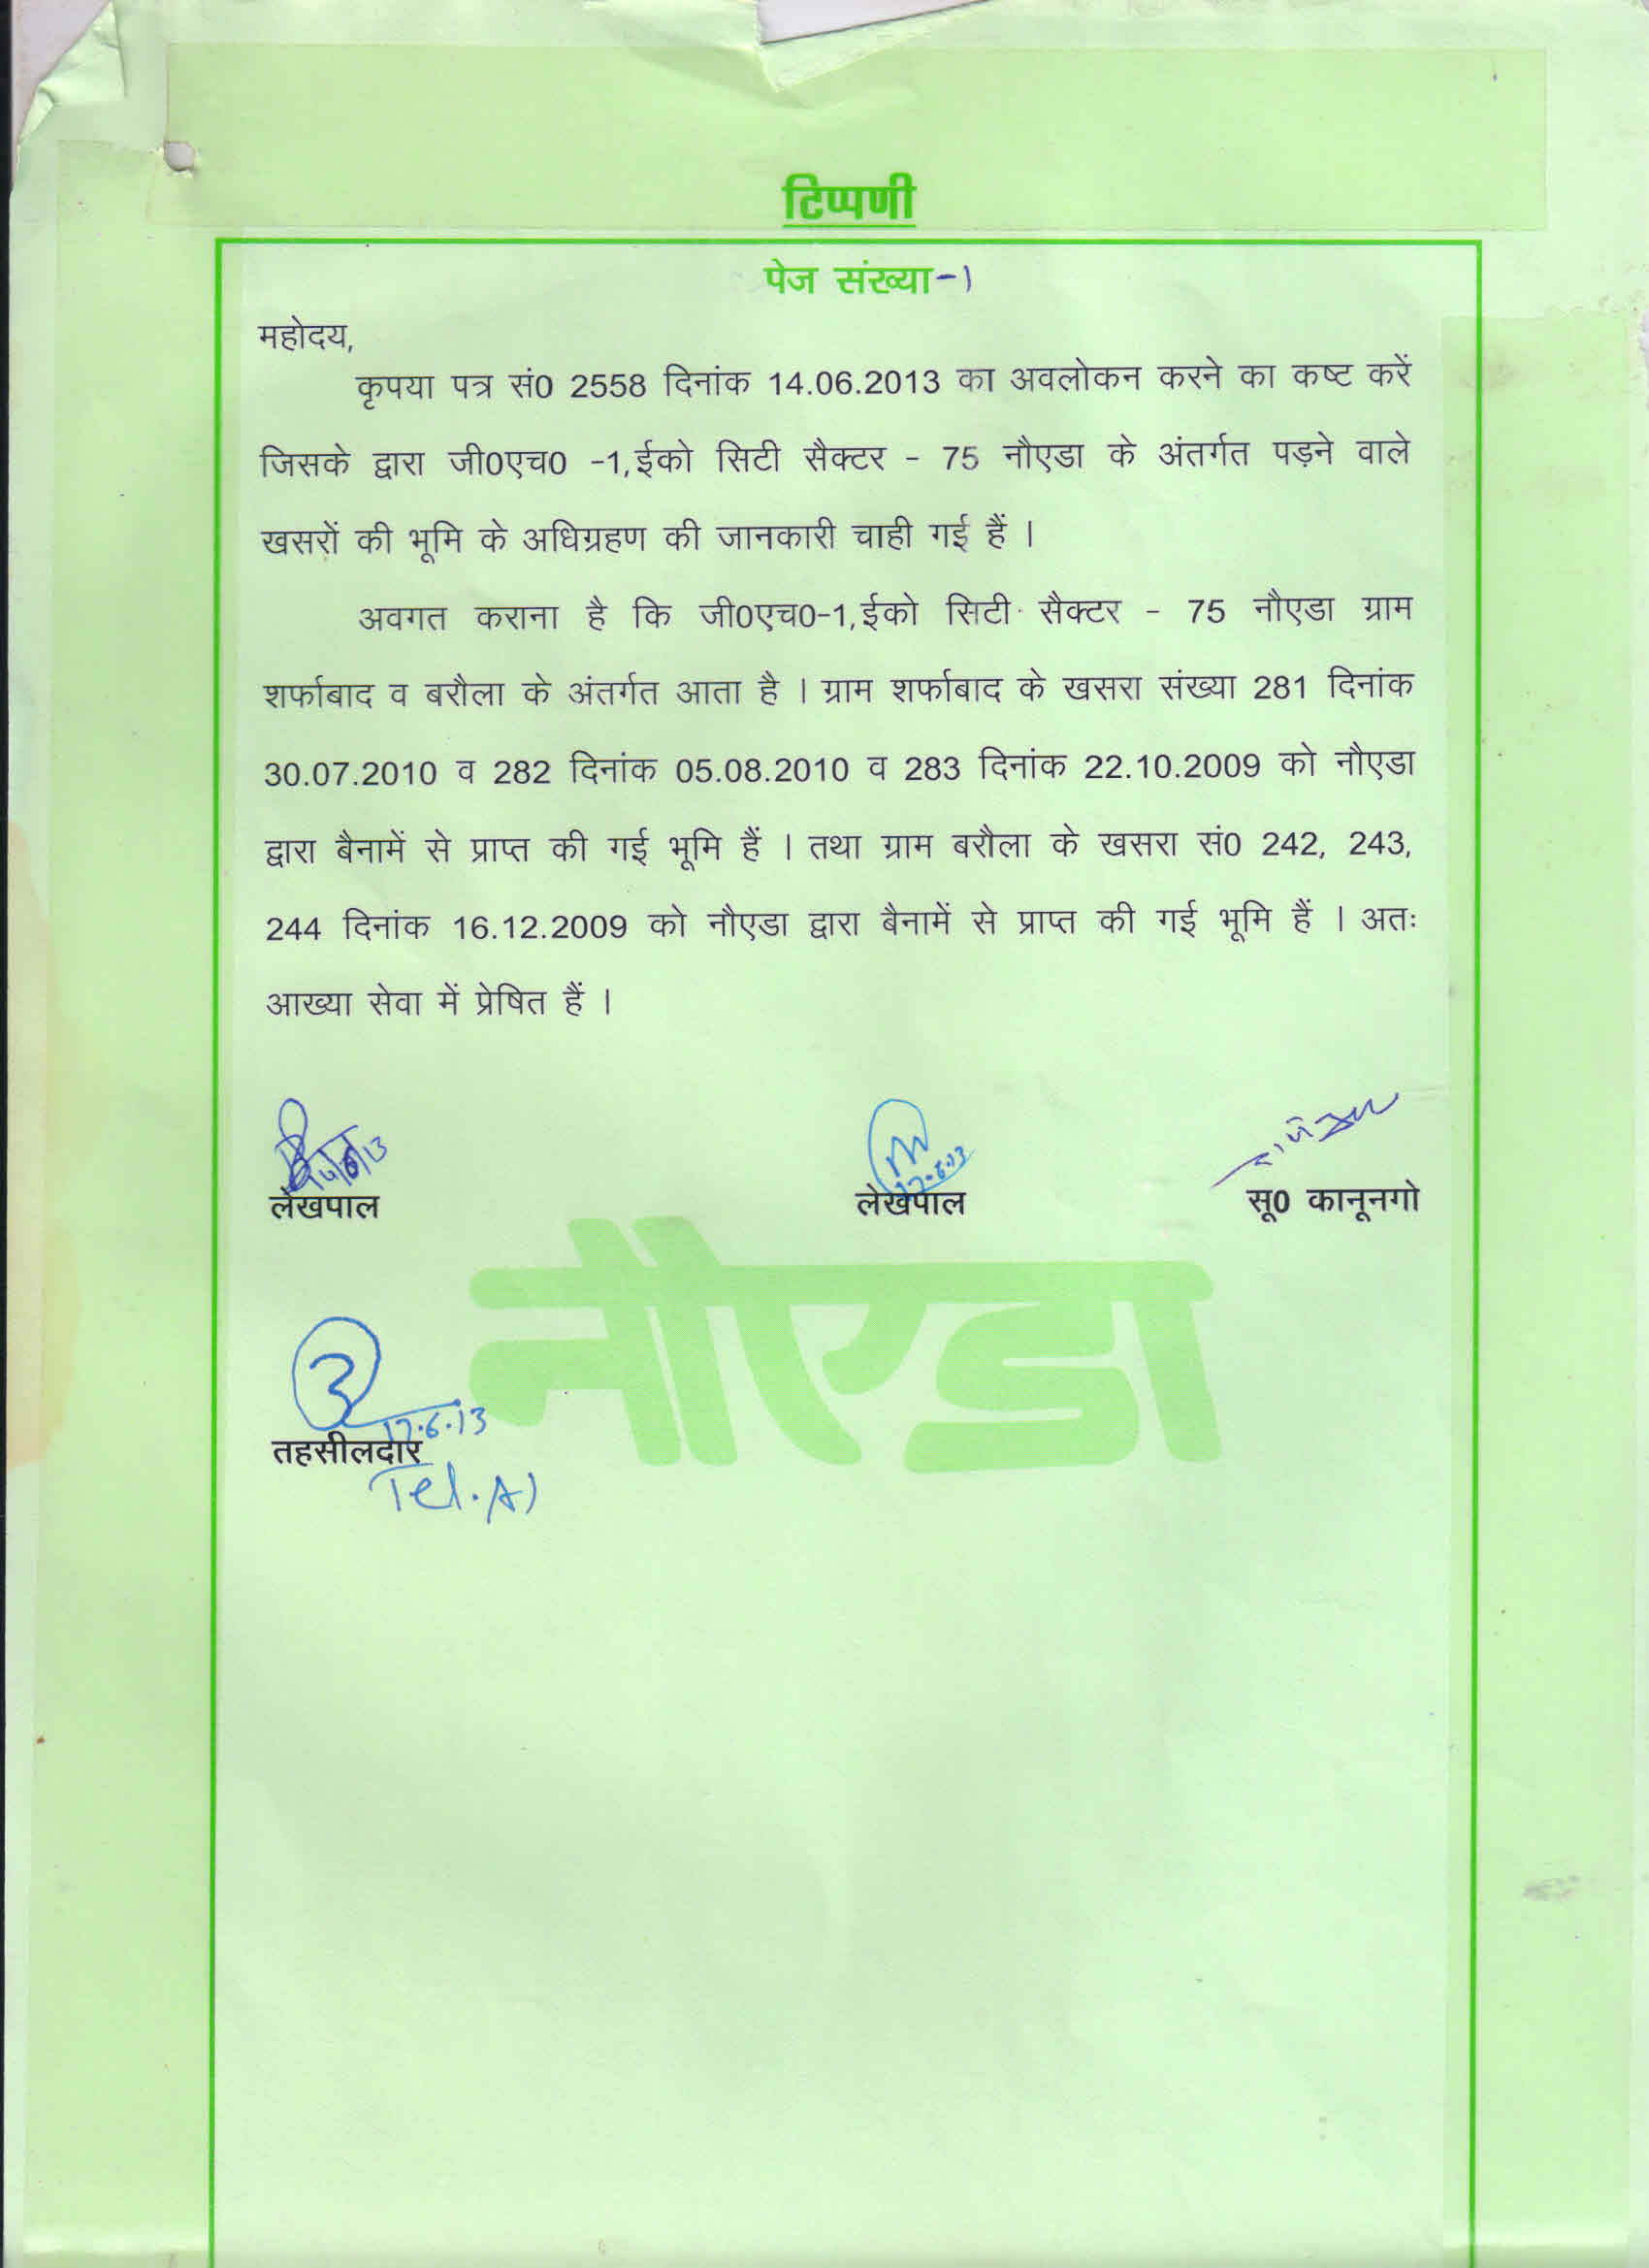 टिप्पणी
पेज संख्या-१
महोदय,
कृपया पत्र सं0 2558 दिनांक 14.06.2013 का अवलोकन करने का कष्ट करें
जिसके द्वारा जी0एच0 -1,ईको सिटी सैक्टर - 75 नौएडा के अंतर्गत पड़ने वाले
खसरों की भूमि के अधिग्रहण की जानकारी चाही गई हैं ।
अवगत कराना है कि जी0एच0-1,ईको सिटी सैक्टर - 75 नौएडा ग्राम
शर्फाबाद व बरौला के अंतर्गत आता है । ग्राम शर्फाबाद के खसरा संख्या 281 दिनांक
30.07.2010 व 282 दिनांक 05.08.2010 व 283 दिनांक 22.10.2009 को नौएडा
द्वारा बैनामें से प्राप्त की गई भूमि हैं । तथा ग्राम बरौला के खसरा सं0 242, 243,
244 दिनांक 16.12.2009 को नौएडा द्वारा बैनामें से प्राप्त की गई भूमि हैं । अतः
आख्या सेवा में प्रेषित हैं ।
17.6.13
लेखपाल लेखपाल सू0 कानूनगो
नौएडा
17.6.13
तहसीलदार